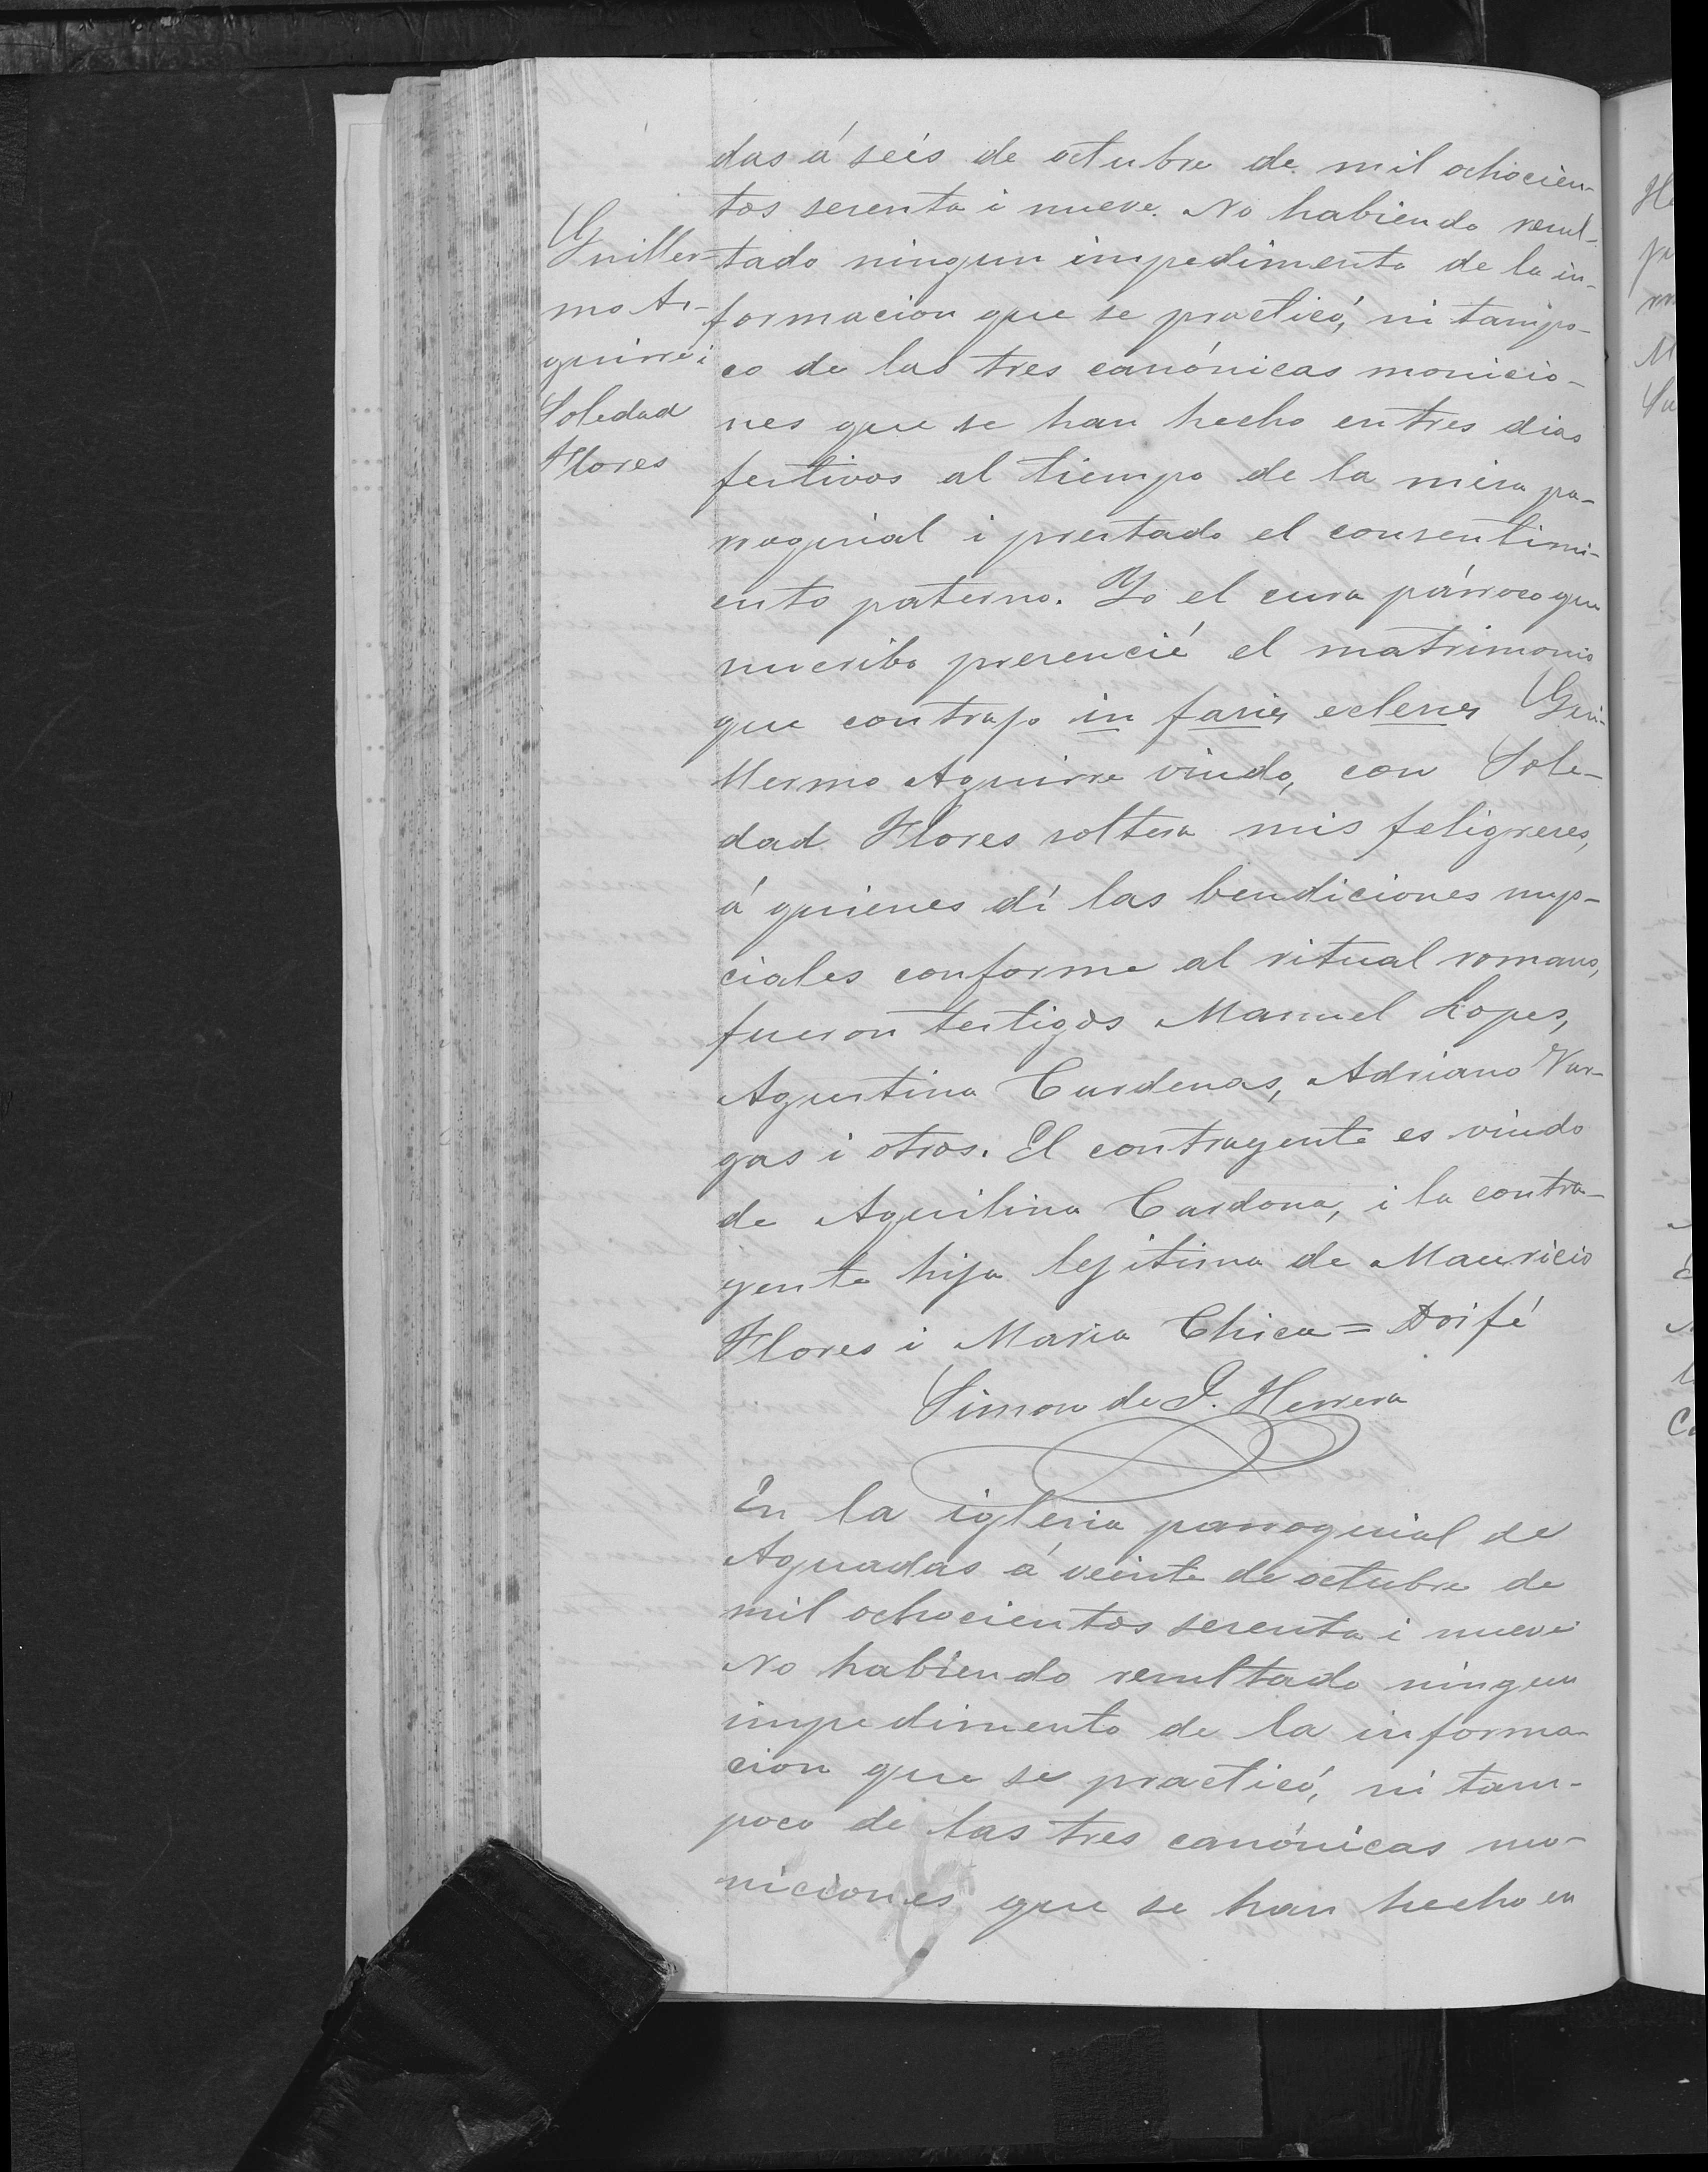 das á seis de octubre de mil ochocien-
tos sesenta i nueve. No habiendo resul-
Guiller-
mo A-
guirre i
Soledad
Flores
tado ningun impedimento de la in-
formacion que se practicó, ni tampo-
co de las tres canónicas monicio-
nes que se han hecho en tres dias
festivos al tiempo de la misa pa-
rroquial i prestado el consentimi-
ento paterno. Yo el cura párroco que
suscribo presencié el matrimonio
que contrajo in facies eclesies Gui-
llermo Aguirre viudo, con Sole-
dad Flores soltera mis feligreses,
á quienes dí las bendiciones nup-
ciales conforme al ritual romano,
fueron testigos Manuel Lopes,
Agustina Cardenas, Adriano Var-
gas i otros. El contrayente es viudo
de Aquilina Cardona, i la contra-
yente hija lejitima de Mauricio
Flores i Maria Chica = Doi fé
Simon de J. Herrera
En la iglesia parroquial de
Aguadas á veinte de octubre de
mil ochocientos sesenta i nueve
No habiendo resultado ningun
impedimento de la informa-
cion que se practicó, ni tam-
poco de las tres canónicas mo-
niciones que se han hecho en